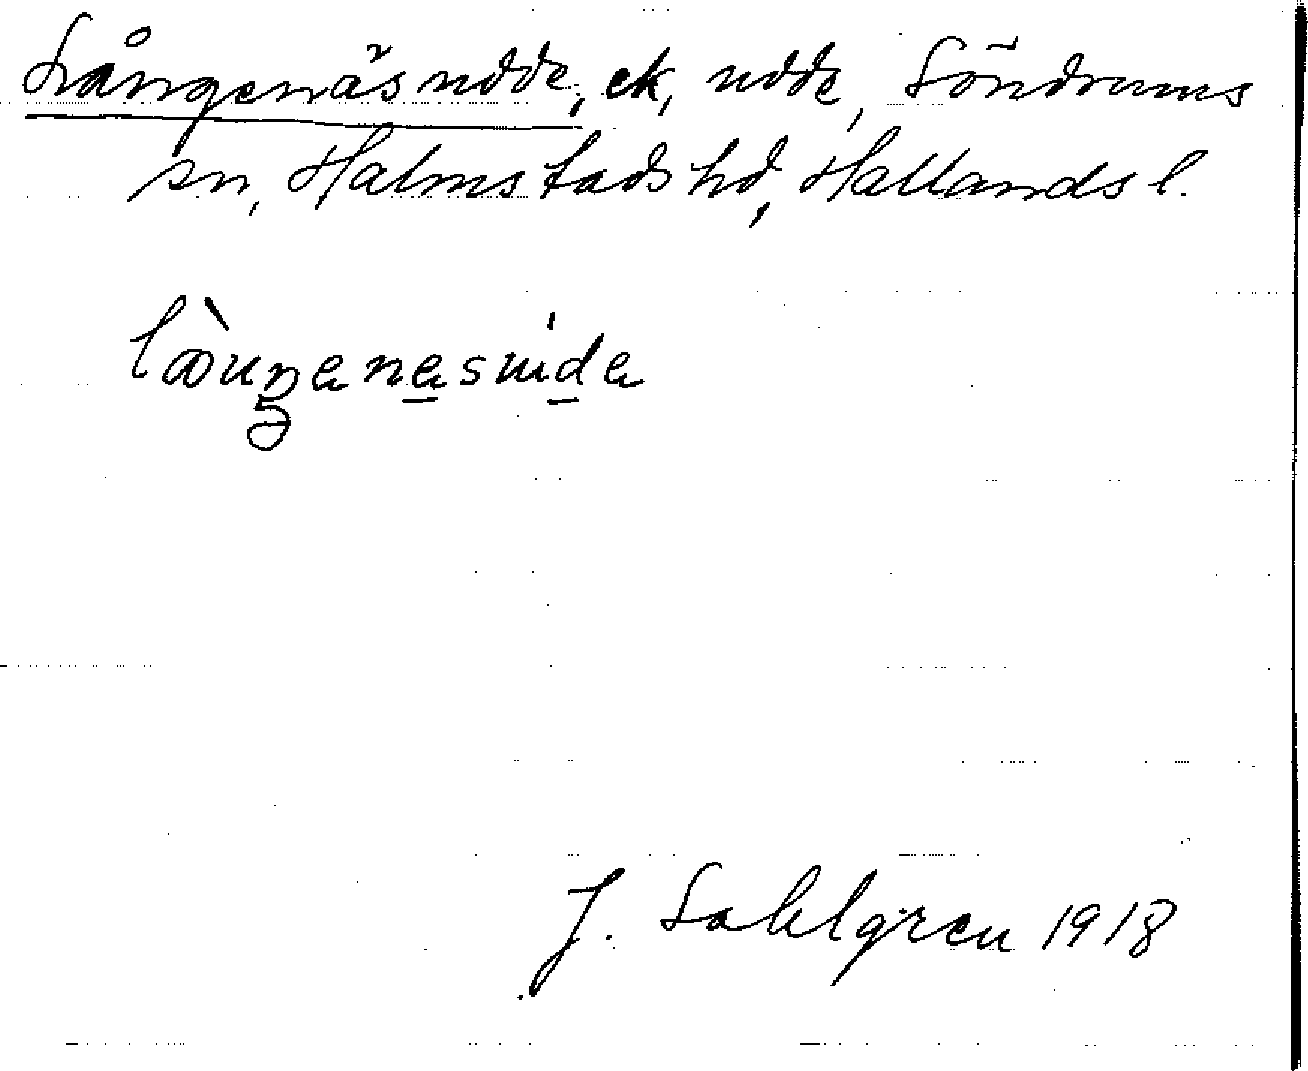 Långenäsudde, ek, udde, Söndrums
sn, Halmstads hd, Hallands l.
J. Sahlgren 1918